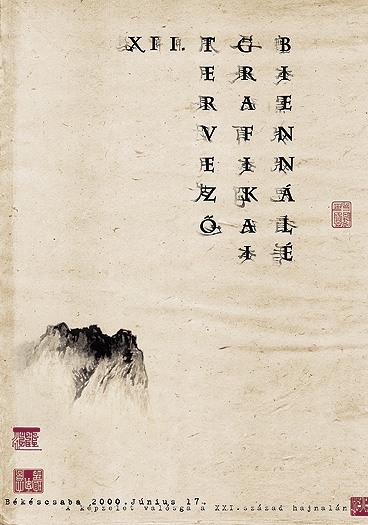 XII.
TERVEZŐ
GRAFIKAI
BIENNÁLÉ
Békéscsaba 2000.Június 17.
A képzelet valósga a XXI.század hajnalán